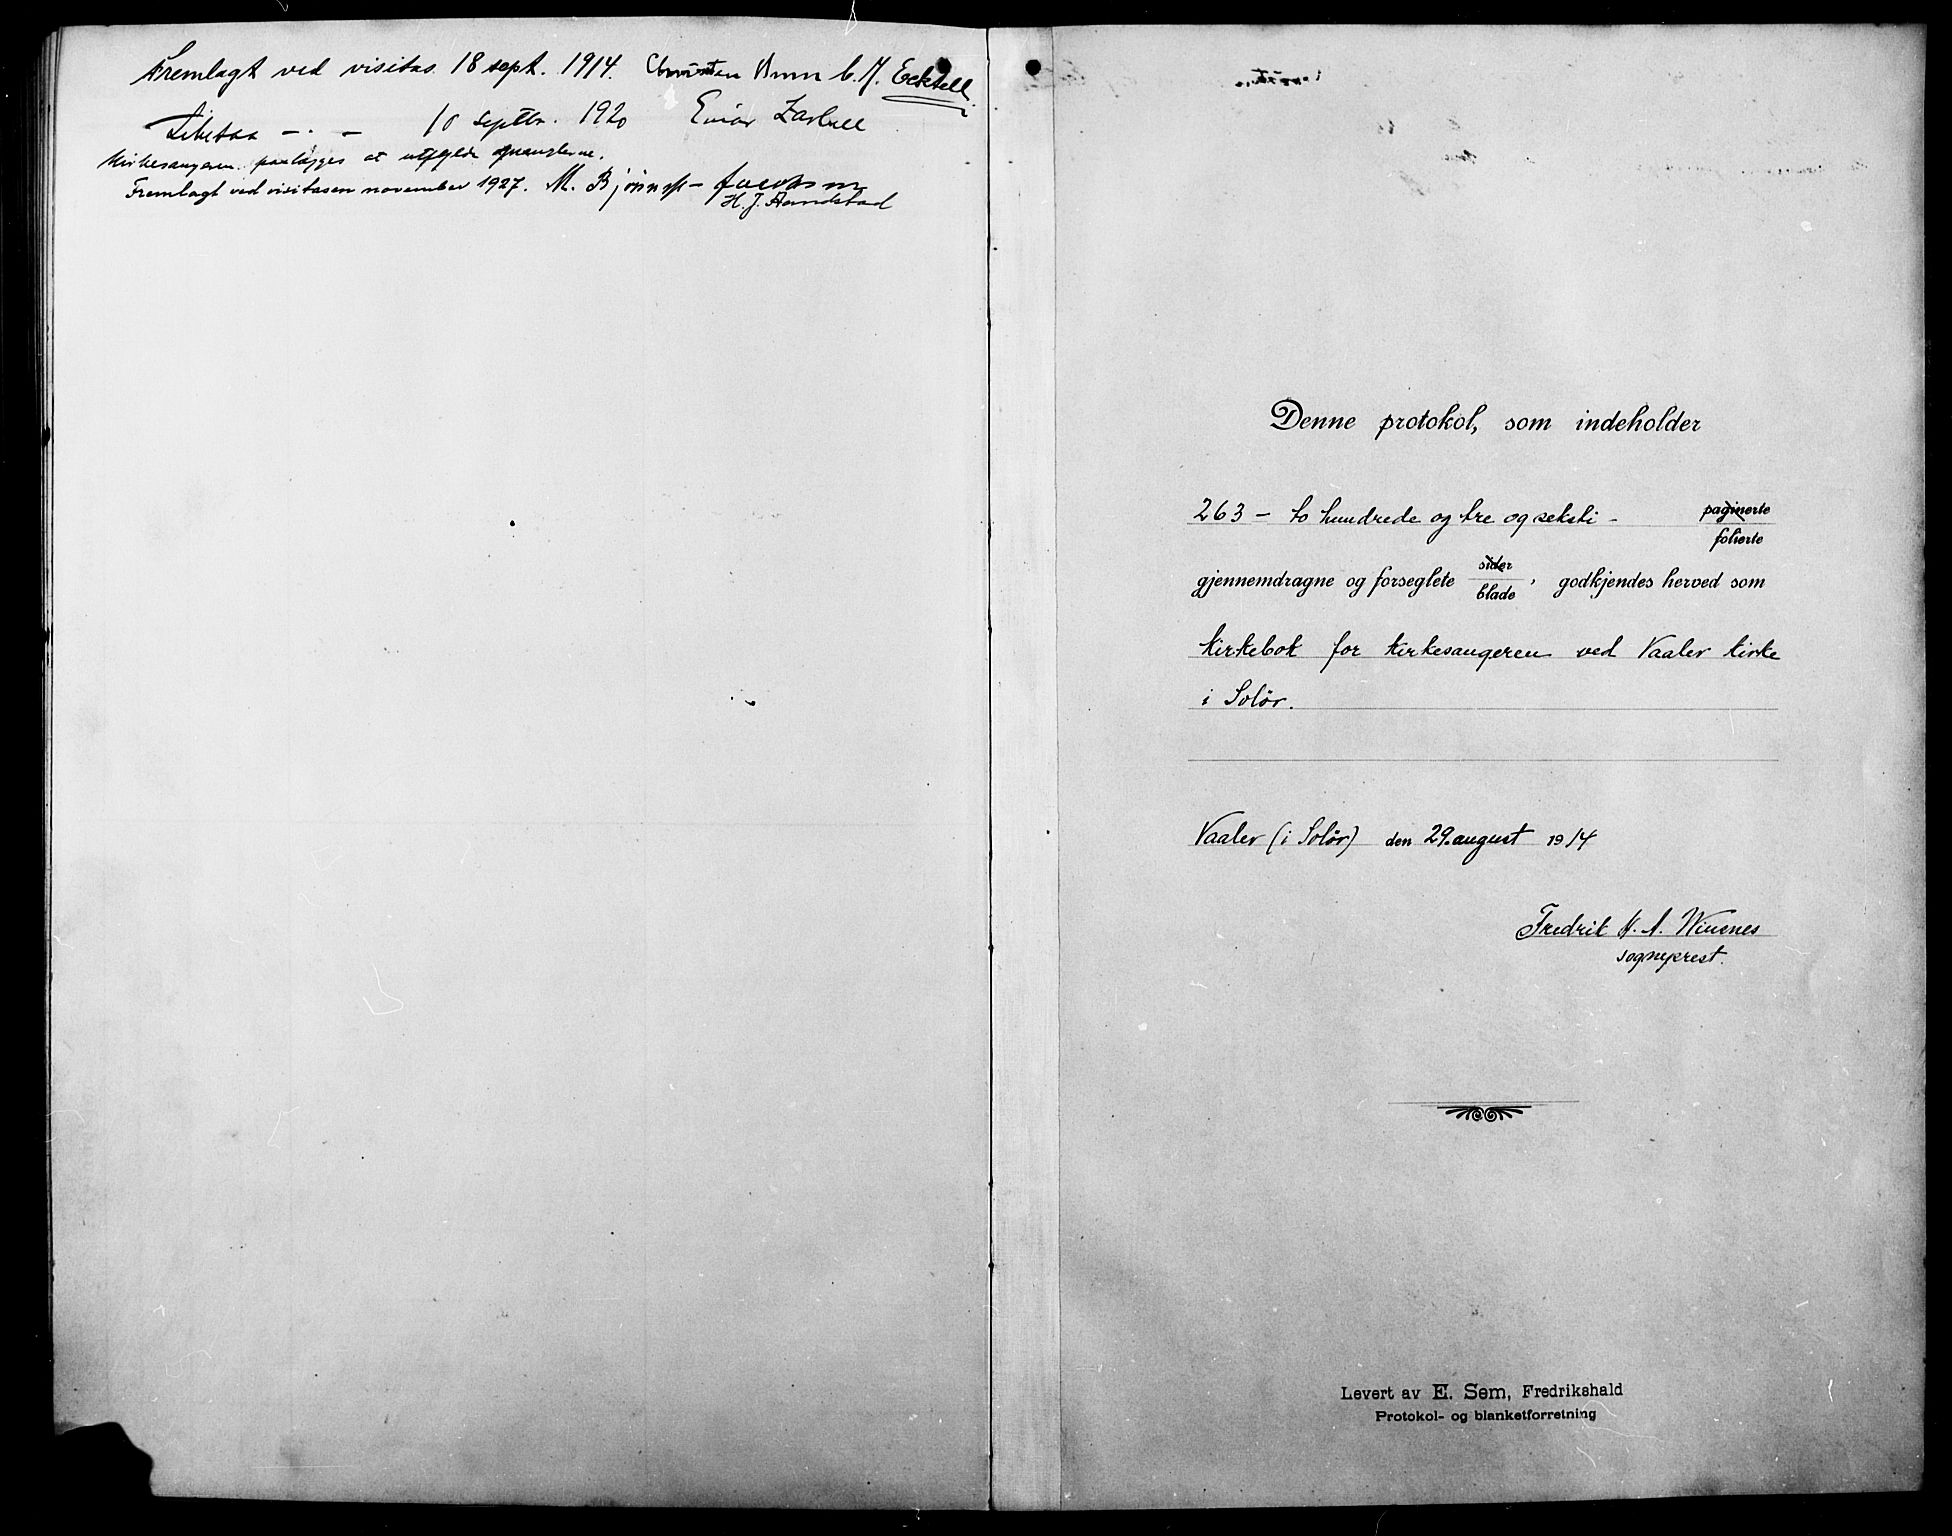 Fremlagt ved visitas 18 sept. 1914. Christen Brun C. M. Eckhell
10 septbr. 1920 Einar
Kirkesangeren paalægges at utfylde manglerne.
Fremlagt ved visitasen november 1927. M. Bjönnes-Jacobsen
H. J. Aandstad
Denne protokol, som indeholder
263 - to hundrede og tre og seksti - paginerte
folierte
gjennemdragne og forseglete sider
blade, godkjendes herved som
kirkebok for kirkesangeren ved Vaaler kirke
i Solör.
Vaaler (i Solör) den 29. august 1914
Fredrik K. A. Winsnes
sogneprest.
Levert av E. Sem, Fredrikshald
Protokol- og blanketforretning